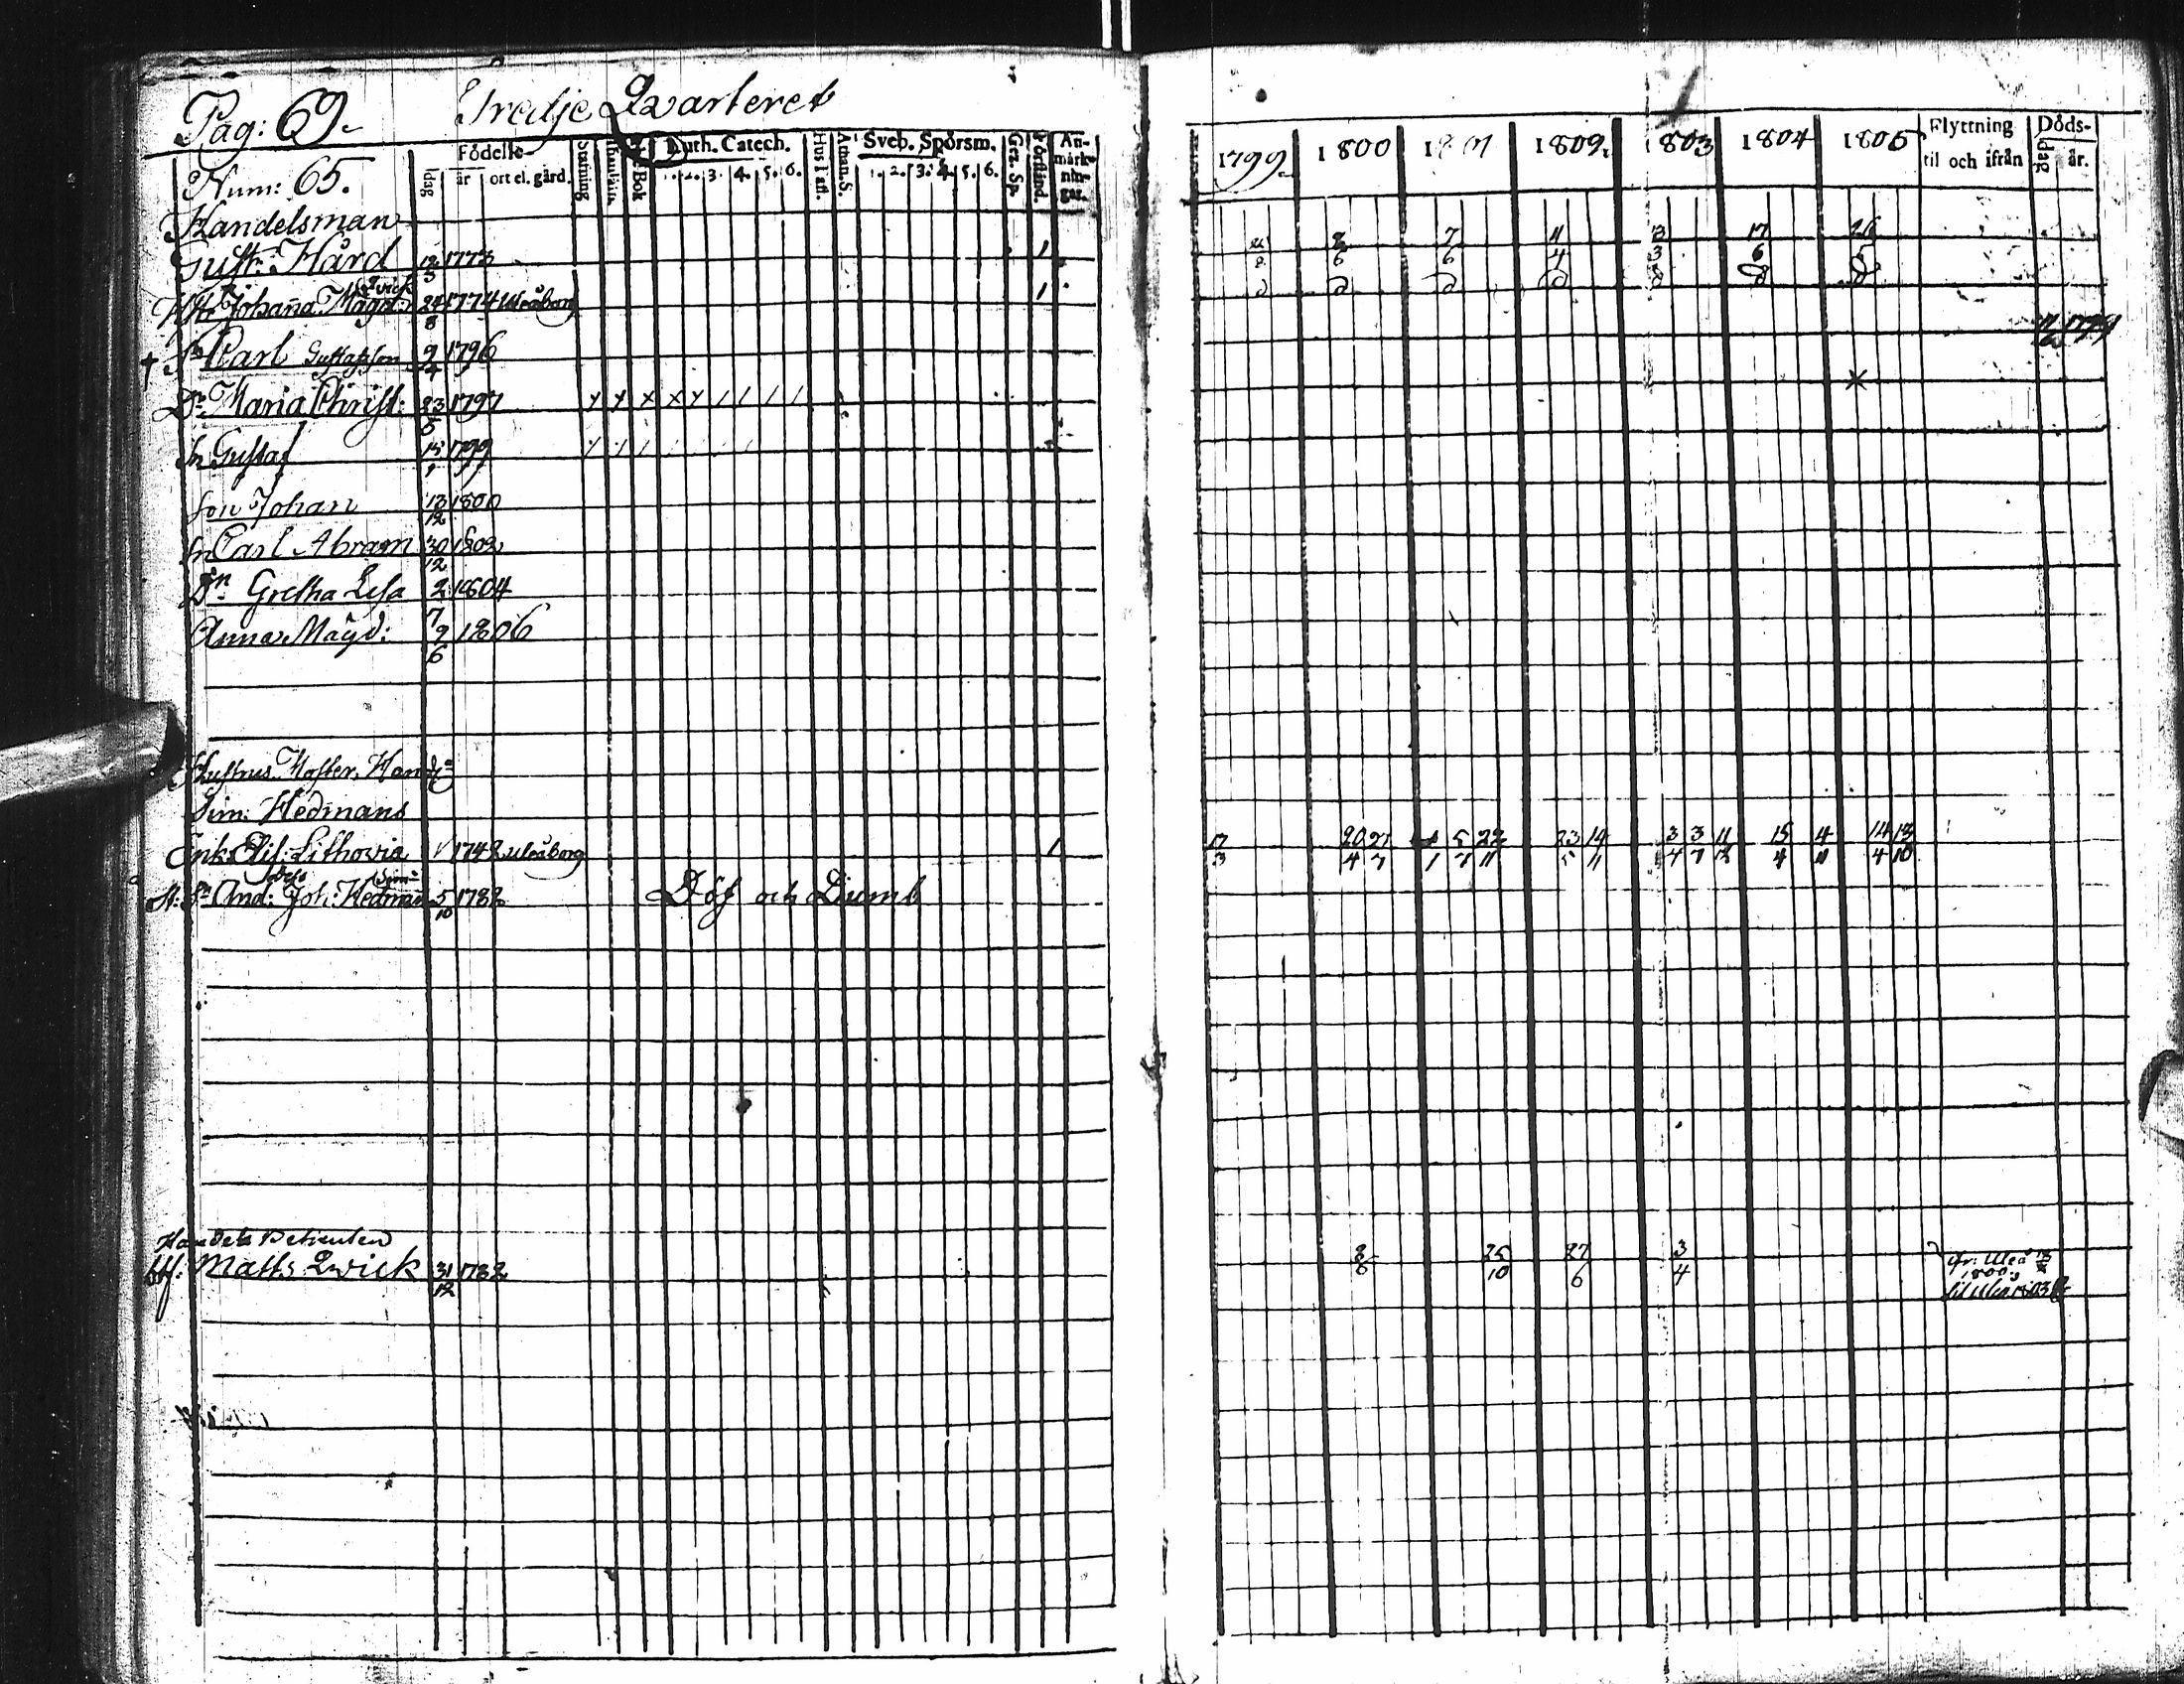 Pag: 69. Tredje Qvarteret
Num: 65. Födelse- dag år ort el. gård. Stafning Abc Bok Luth. Catech. 1. 2. 3. 4. 5. 6. Hus Taf. Athan. S. Sveb. Spörsm. 1. 2. 3. 4. 5. 6. Gez. Sp. Förstånd. An-märk-nin-gar.
1799. 1800 1801 1802. 1803 1804 1805 Flyttning til och ifrån Döds- dag år.
Handelsman
Gust: Hård 12/3 1773 1 2/6 7/6 11/4 3/3 17/6 26/5
H: Johana Magd: Qvick 24/8 1774 Uleåborg 1 d d d d d d d
+ Sn Carl Gustafsson 9/4 1796 1799
Dr Maria Christ: 23/5 1797 x x x x x / / / /
Sn Gustaf 15/1 1799
Son Johan 13/12 1800
Sn Carl Abram 30/12 1802
Dr Gretha Lisa 2/7 1804
Anna Magd: 9/6 1806
Hustrus Moster, Han
Sim: Hedmans
Enk: Elis: Lithovia 1742 Uleåborg 1 17/3 20/4 27/7 5/7 22/11 23/5 14/11 3/4 3/7 11/12 15/4 4/11 14/4 13/10
Sn And: Joh: Hedman 5/10 1782 Döf och Dumb
Handels Betienten
Matts Qvick 31/12 1782 8/8 25/10 27/6 3/4 fr: Uleå
1800.
til Uleå 1803